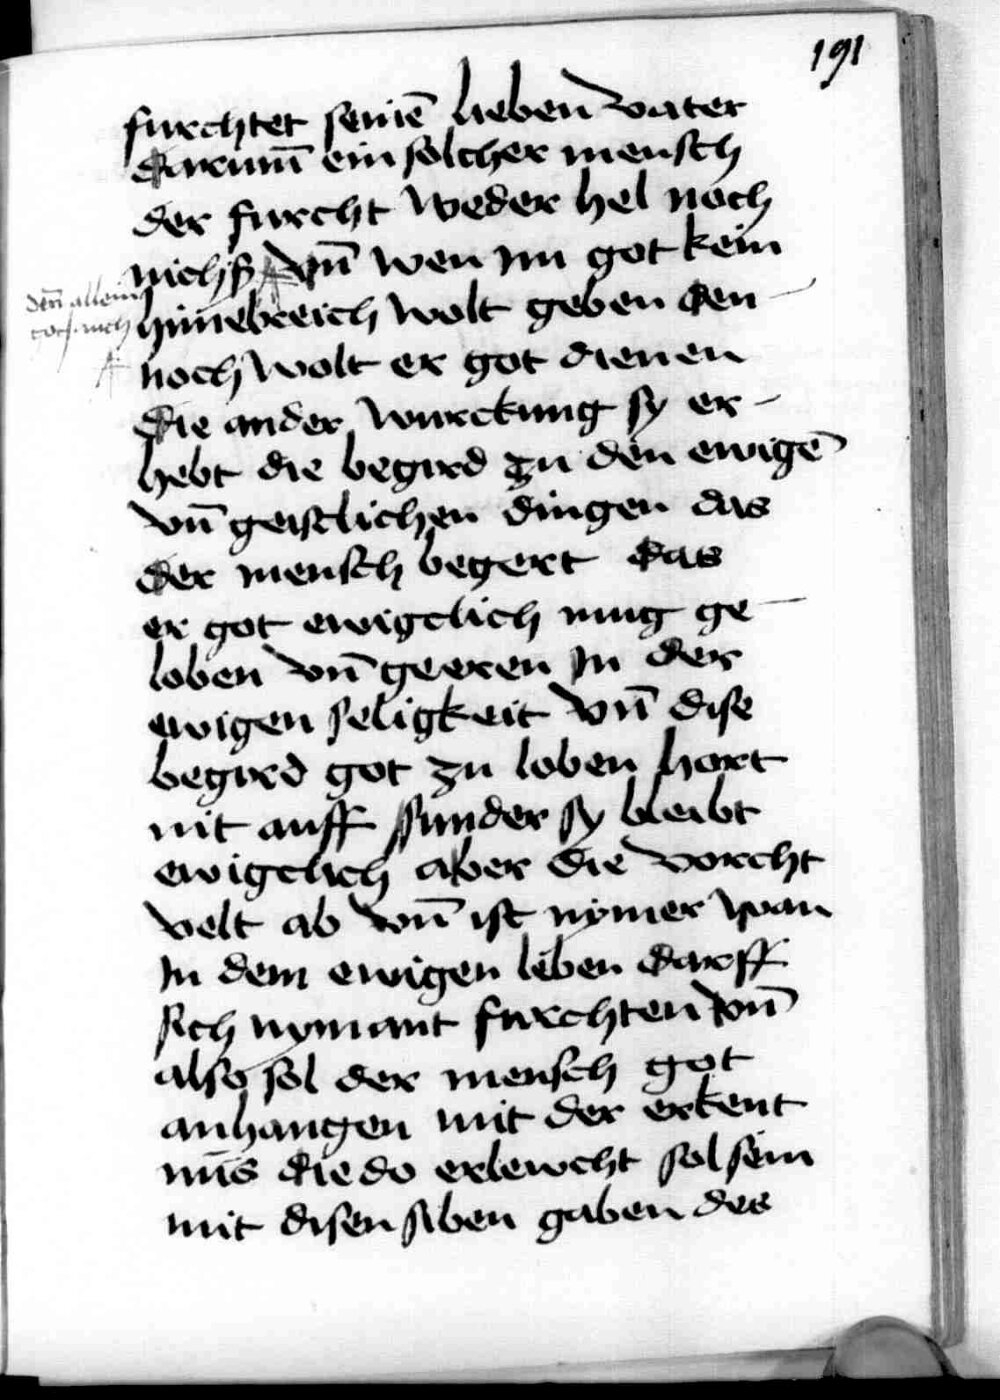 191
furchtet seinē lieben vater
darumb ein solcher mensch
der furcht weder hel noch
nichß vn̄ wen im got kein
den̄ allein
himelreich wolt geben den
noch wolt er got dienen
die ander wurckung sy er
hebt die begird zu den ewigē
vn̄ geistlichen dingen das
der mensch begert das
er got ewigclich mug ge
loben vn̄ geeren In der
ewigen seligkeit vn̄ dise
begird got zu loben hort
nit auff sunder sy bleibt
ewigclich aber die vorcht
velt ab vn̄ ist nymer wan
In dem ewigen leben darff
sich nymant furchten vn̄
also sol der mensch got
anhangen mit der erkent
nus die do erlewcht sol sein
mit disen siben gaben des